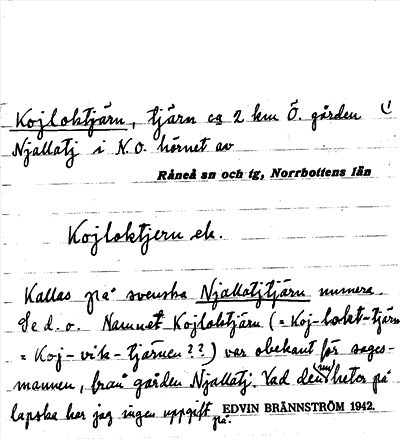 Kojloktjärn, tjärn ca 2 km Ö. gården
Njallatj i N.O. hörnet av
Råneå sn och tg, Norrbottens län
Kojloktjern ek.
Kallas på svenska Njallatjtjärn numera.
Se d.o. Namnet Kojloktjärn (= Koj-lokt-tjärn
= Koj-vik-tjärnen??) var obekant för sages-
mannen, från gården Njallatj. Vad den nu heter på
lapska har jag ingen uppgift på.
EDVIN BRÄNNSTRÖM 1942.